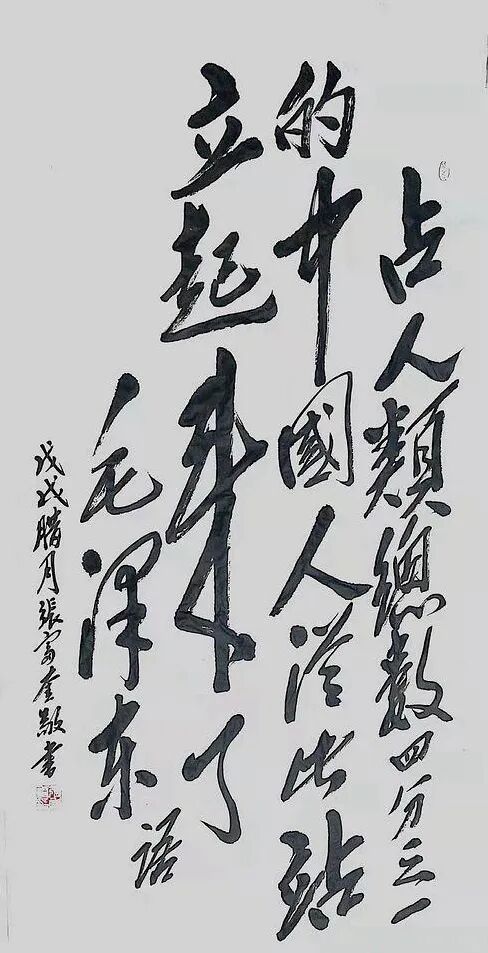 占人類總數四分之一
的中國人從此站
立起來了
毛澤東語
戊戌腊月張富奎敬書